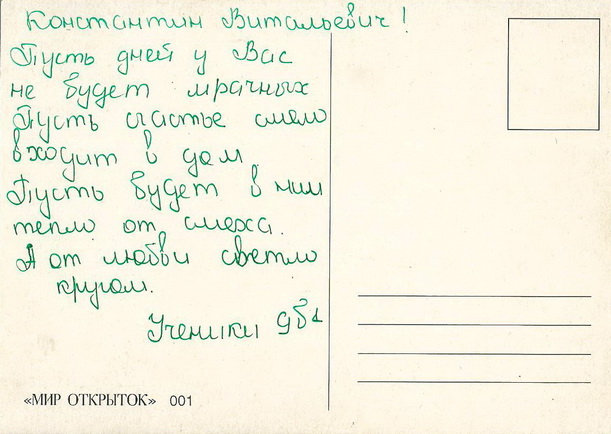 Константин Витальевич!
Пусть дней у Вас
не будет мрачных
Пусть счастье смело
входит в дом,
Пусть будет в нём
тепло от смеха.
А от любви светло
кругом.
Ученики 9б
«МИР ОТКРЫТОК» 001